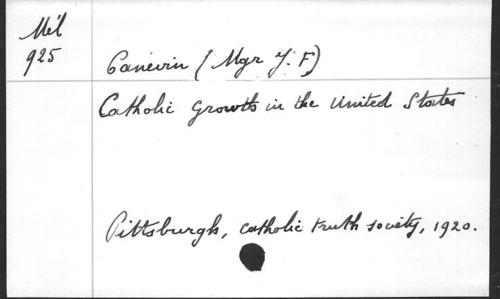 Mél
925
Canevin (Mgr J. F)
Catholic Growth in the United States
Pittsburgh, catholic truth society, 1920.